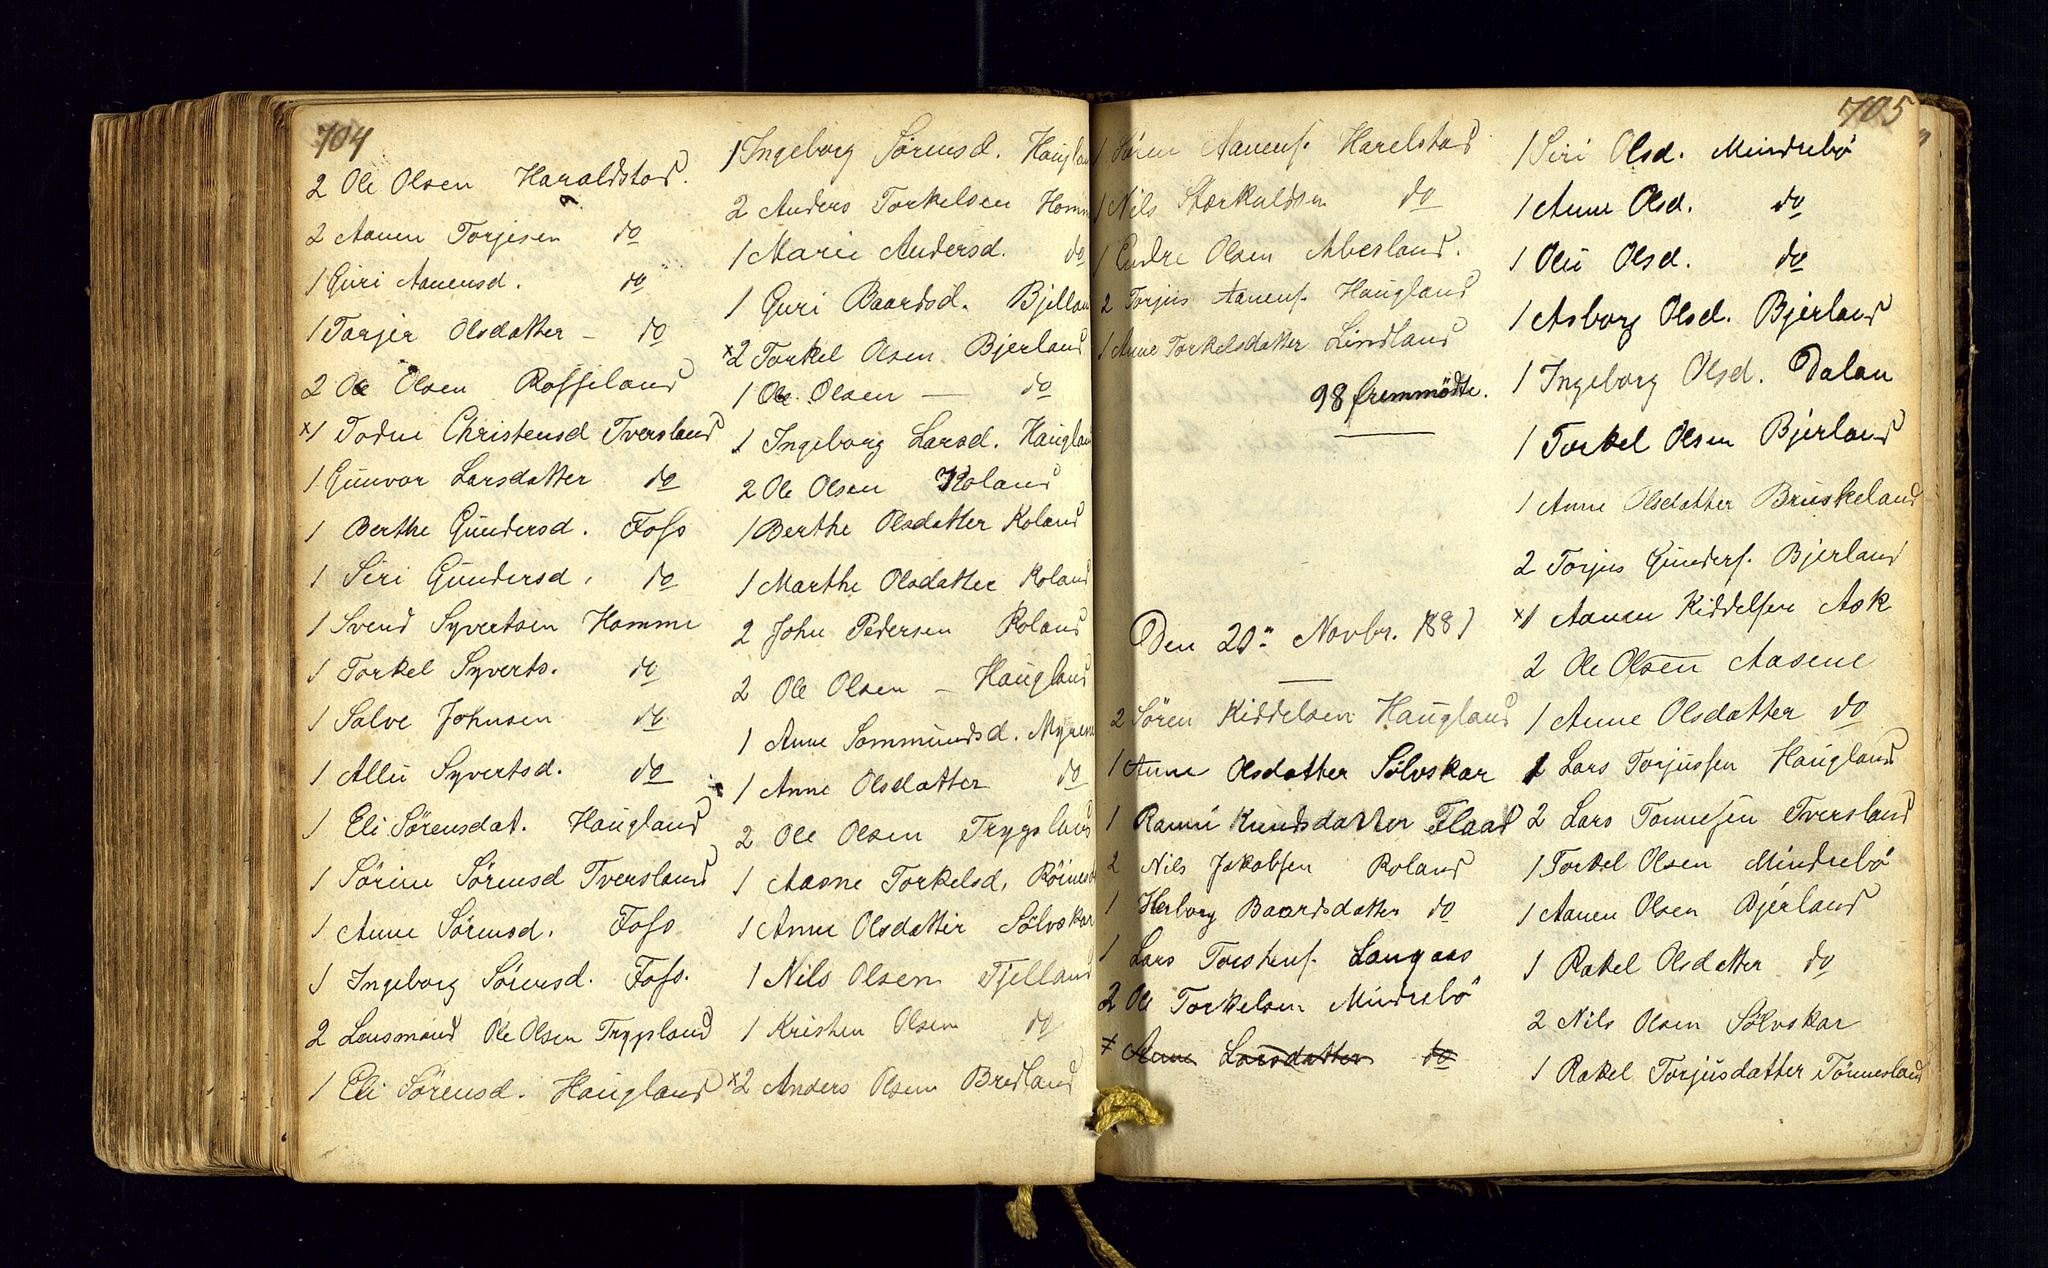 704
2 Ole Olsen Haraldstad.
2 Aanen Torjesen do
1 Guri Aanensd. do
1 Torjer Olsdatter - do
2 Ole Olsen Rosseland
x1 Todne Christensd Tversland
1 Gunvor Larsdatter do
1 Berthe Gundersd. Foss
1 Siri Gundersd. do
1 Svend Syvertsen Homme
1 Torkel Syverts. do
1 Salve Johnsen do
1 Allii Syvertsd. do
1 Eli Sörensdat. Haugland
1 Sörine Sörensd Tversland
1 Anne Sörensd. Foss
1 Ingeborg Sörensd. Foss.
2 Lensmand Ole Olsen Trygsland
1 Eli Sörensd. Haugland
1 Ingeborg Sörensd. Haugland
2 Anders Torkelsen Homm
1 Marie Andersd. do
1 Guri Baardsd. Bjelland
x2 Torkel Olsen Bjerland
1 Ole Olsen — do
1 Ingeborg Larsd. Haugland
2 Ole Olsen Roland
1 Berthe Olsdatter Roland
1 Marthe Olsdatter Roland
2 John Pedersen Roland
2 Ole Olsen - Haugland
1 Anne Sommundsd. Myrene
1 Anne Olsdatter do
2 Ole Olsen Trygsland
1 Aasne Torkelsd.
1 Anne Olsdatter Sölvskar
1 Nils Olsen Fjelland
1 Kristen Olsen do
x2 Anders Olsen Bredland
705
1 Sören Aanens. Harelstad
1 Nils Stærkuldsen do
1 Endre Olsen Abesland.
2 Torjus Aanens. Haugland
1 Anne Torkelsdatter Lindland
98 fremmödte.
Den 20de Novbr. 1881
2 Sören Kiddelsen Haugland
1 Anne Olsdatter Sölvskar
1 Rannei Knudsdatter Flaad
2 Nils Jakobsen Roland
1 Herborg Baardsdatter do
1 Lars Torstens. Langaas
2 Ole Torkelsen Mindrebö
x Anne Larsdatter do
1 Siri Olsd. Mindrebö
1 Anne Olsd. do
1 Olii Olsd. do
1 Asborg Olsd. Bjerland
1 Ingeborg Olsd. Dalan
1 Torkel Olsen Bjerland
1 Anne Olsdatter Bruskeland
2 Torjus Gunders. Bjerland
x1 Aanen Kiddelsen Ask
2 Ole Olsen Aasene
1 Anne Olsdatter do
2 Lars Torjussen Haugland
2 Lars Tønnesen Tversland
1 Torkel Olsen Mindrebö
1 Aanen Olsen Bjerland
1 Rakel Olsdatter do
2 Nils Olsen Sölvskar
1 Rakel Torjusdatter Tönnesland